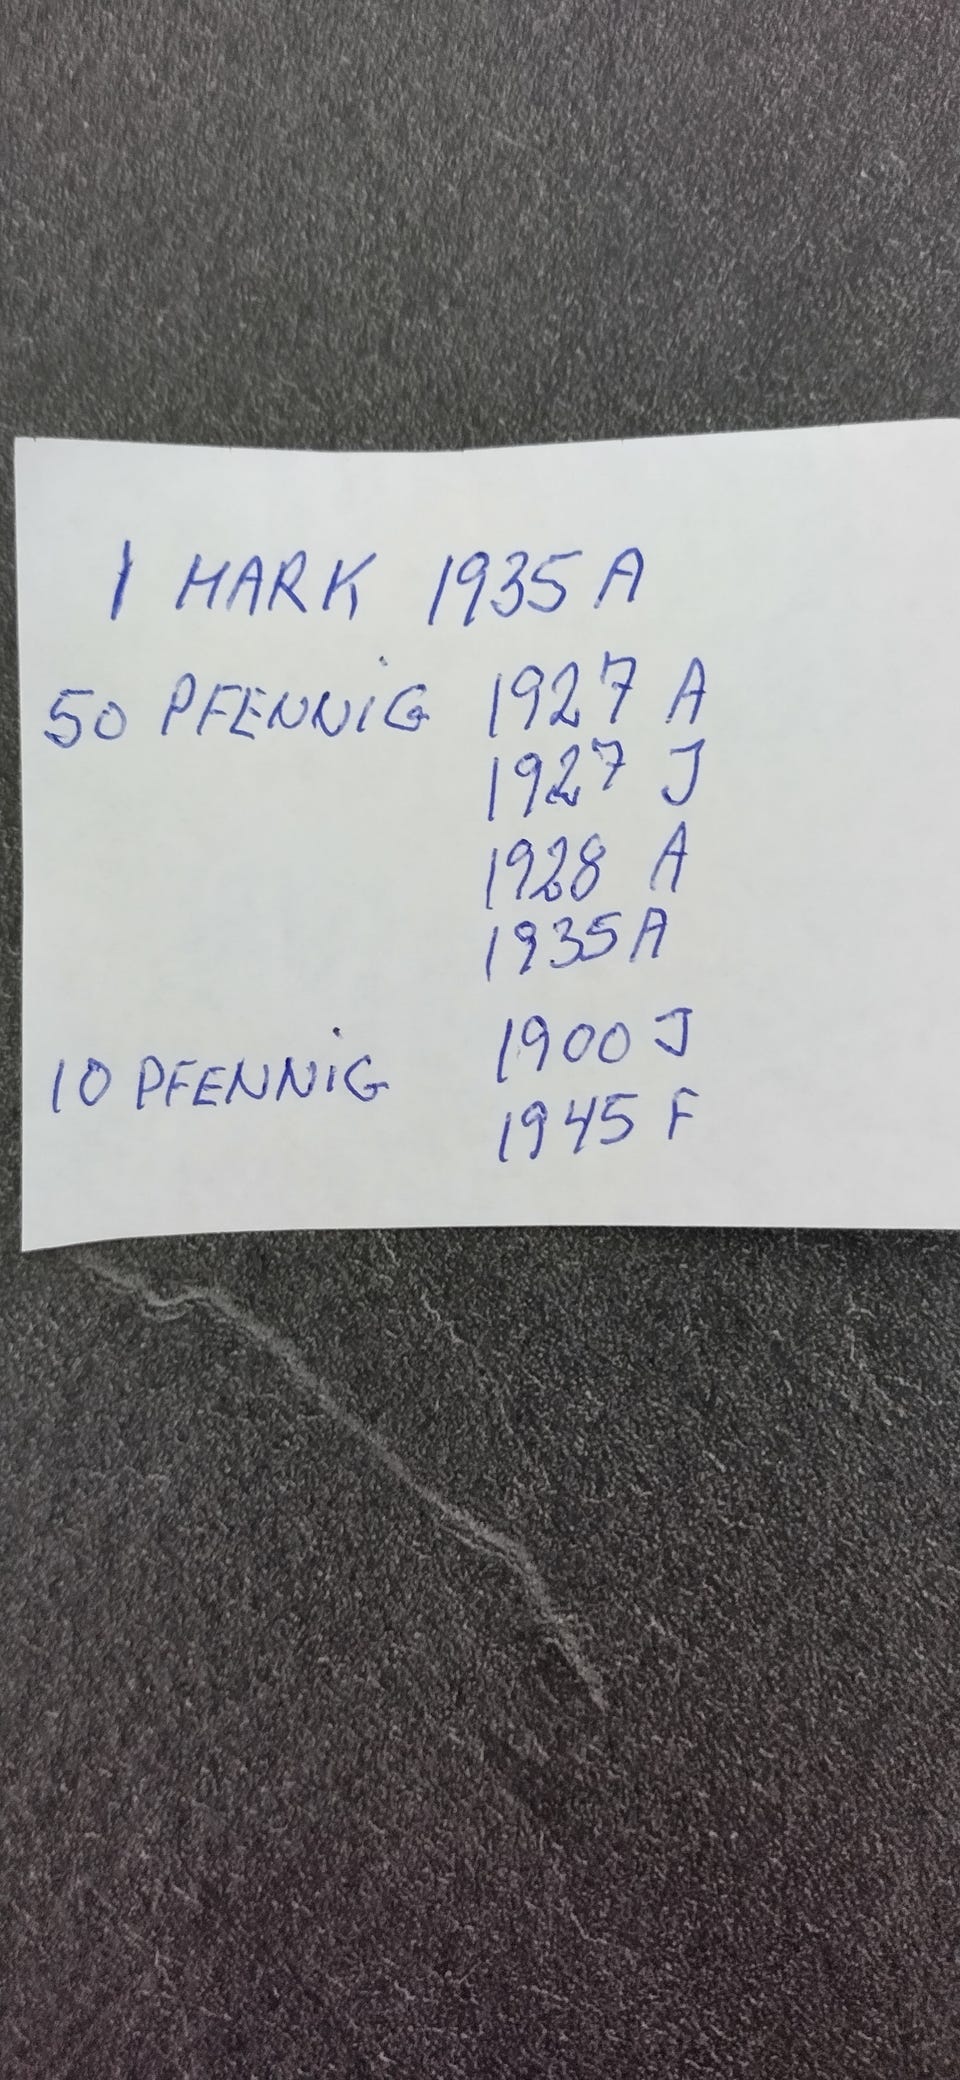 1 MARK 1935 A
50 PFENNiG 1927 A
1927 J
1928 A
1935 A
10 PFENNiG 1900 J
1945 F